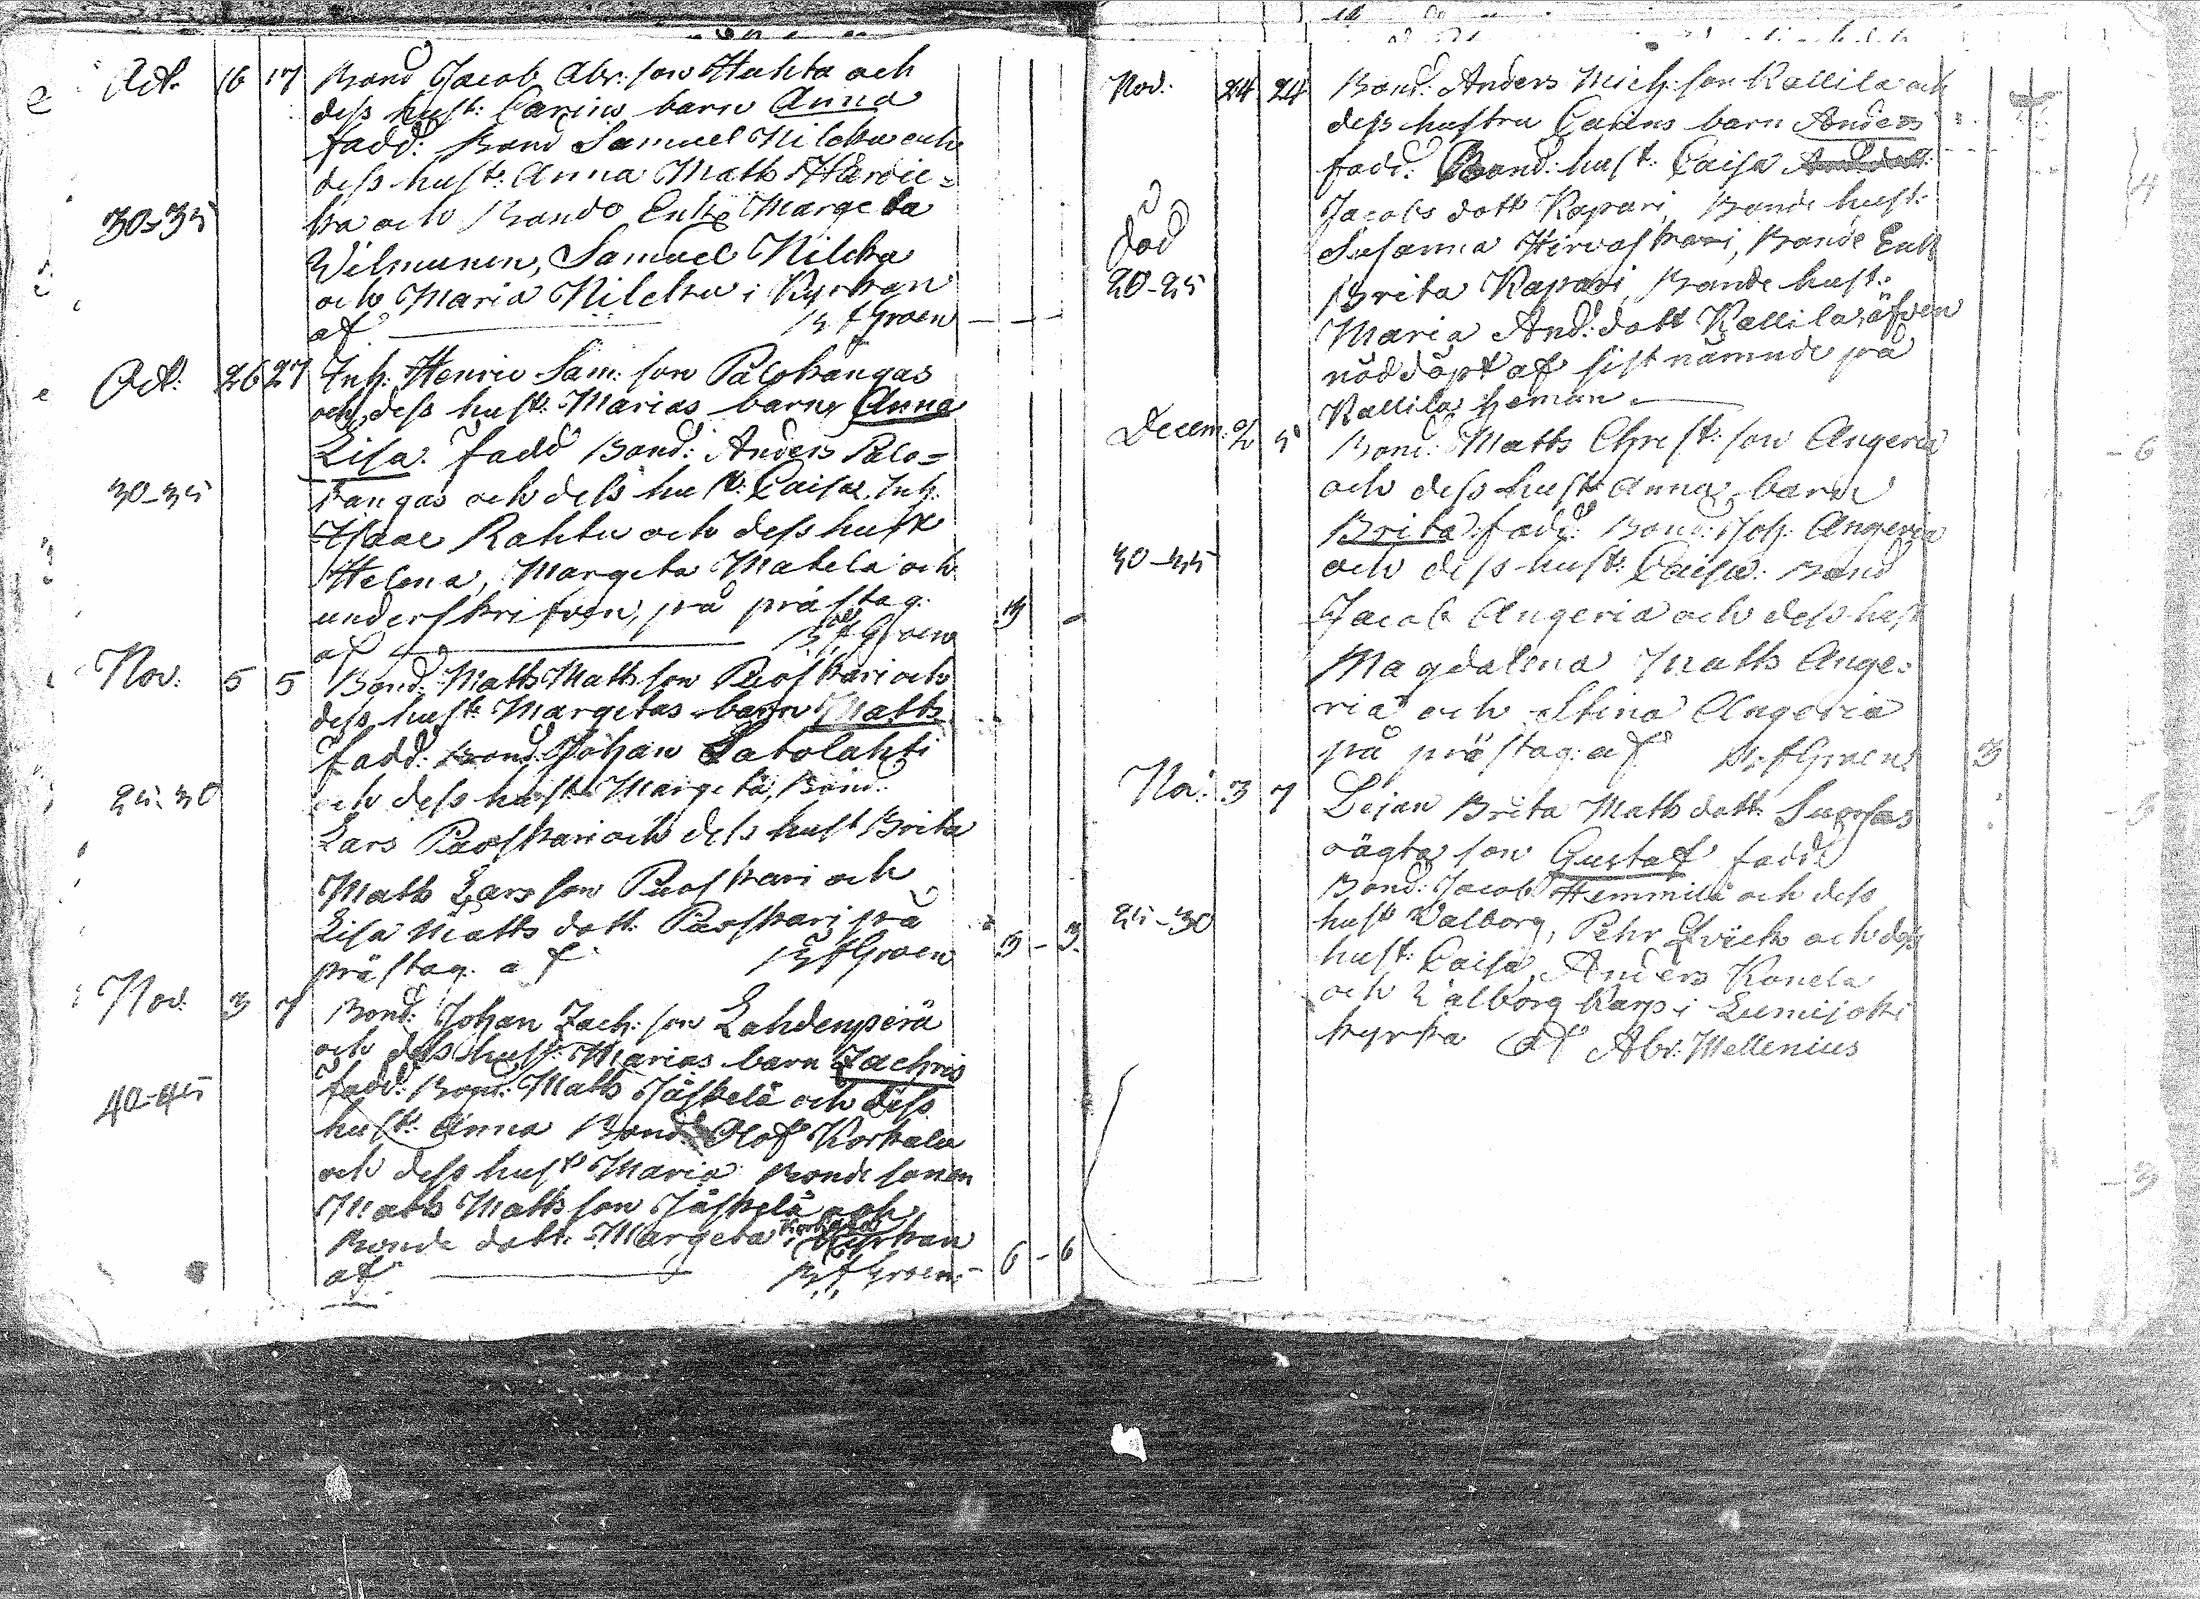 Oct. 16 17 Bond Jacob Abr: son Huhta och
dess hust: Carins barn Anna
fadd: Bond Samuel Nilcku och
dess hust: Anna Math
30-35 ka och Bonde Enk Margeta
Wilmunen, Samuel Nilcku
och Maria Nilcku i Kyrkan
af Groen
Oct: 26 27 Inh: Henric Sam: son Palokangas
och dess hust: Marias barn Anna
Lisa. fadd Bond: Anders Palo=
30-35 kangas och dess hust: Caisa, Inh:
Isaac Rahtu och dess hust
Helena, Margeta Matela och
underskrifven, på prästag. 3
af Groen
Nov: 5 5 Bond: Matts Matts son Paoskari och
dess hust: Margetas barn Matts
fadd: Bond: Johan Latolahti
25-30 och dess hust: Margeta, Bond:
Lars Paoskari och dess hust Brita
Matts Lars son Paoskari och
Lisa Matts dott: Paoskari på
prästag. af Groen 3 - 3
Nov. 3 7 Bond: Johan Zach: son Lahdenperä
och dess hust: Marias barn Zachris
40-45 fadd: Bond: Matts Jäskelä och dess
hust: Anna Bond: Olof Korkala
och dess hust Maria Bonde sonen
Matts Matts son Jäskelä och
Bonde dott: Margeta Korkala i Kyrkan
af Groen 6 - 6
Nov. 24 24 Bond: Anders Mich: son Kallila och
dess hustru Carins barn Anders
fadd: Bond: hust: Caisa
Jacobs dott Kapari, Bonde hust: 4
död Susanna Hirvaskari, Bonde Enk
20-25 Brita Kapari, Bonde hust:
Maria And: dott Kallila, äfven
nöddöpt af sist nämnde på
Kallila heman
Decem: 5 Bond: Matts Christ: son Angeria - 6
och dess hust Anna, barn
Brita fadd: Bond: Joh: Angeria
30-35 och dess hust: Caisa: Bond
Jacob Angeria och dess hust
Magdalena Matts Ange=
ria och Stina Angeria
på prästag: af Groen 3
Nov: 3 7 Pejan Brita Matts dott: - 3
oägta son Gustaf fadd:
Bond: Jacob Hemmilä och dess
25-30 hust Walborg, Pehr och dess
hust: Caisa, Anders Konela
och Walborg Karp i Lumijoki
kyrka af Abr: Mellenius
- 3